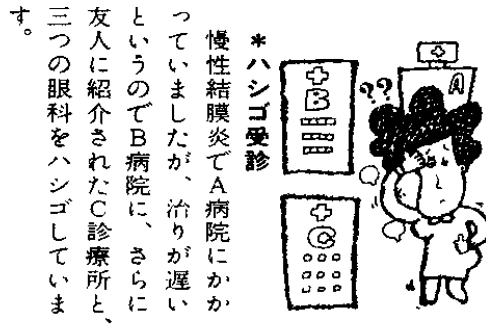 *ハシゴ受診
慢性結膜炎でA病院にかか
っていましたが、治りが遅い
というのでB病院に、さらに
友人に紹介されたC診療所と、
三つの眼科をハシゴしていま
す。
B
C
??
A